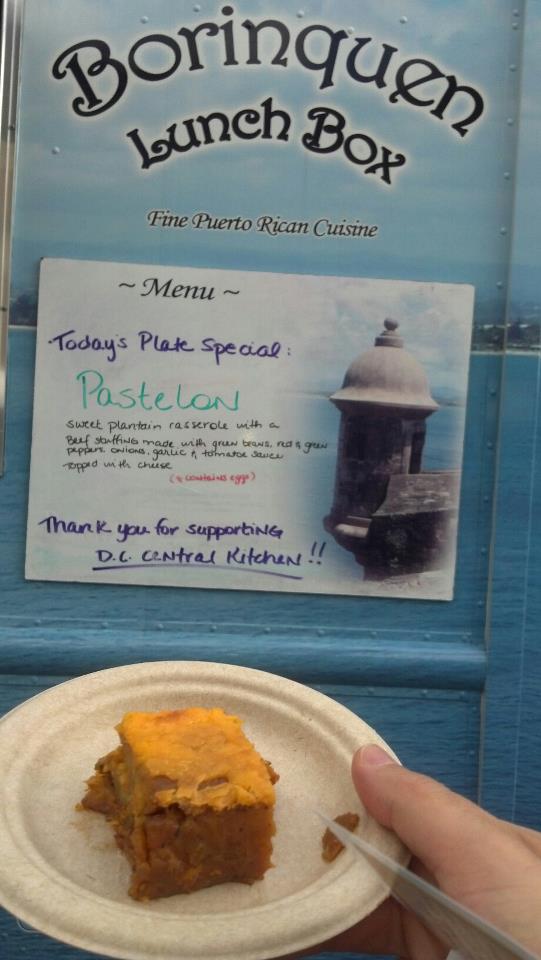 Borinquen
Lunch Box
Fine Puerto Rican Cuisine
~ Menu ~
Today's Plate Special:
Pastelon
sweet plantain casserole with a
Beef stuffing made with green beans, red & green
peppers, onions, garlic & tomatoe sauce
topped with cheese
(* contains eggs)
Thank you for supporting
D.C. Central Kitchen!!